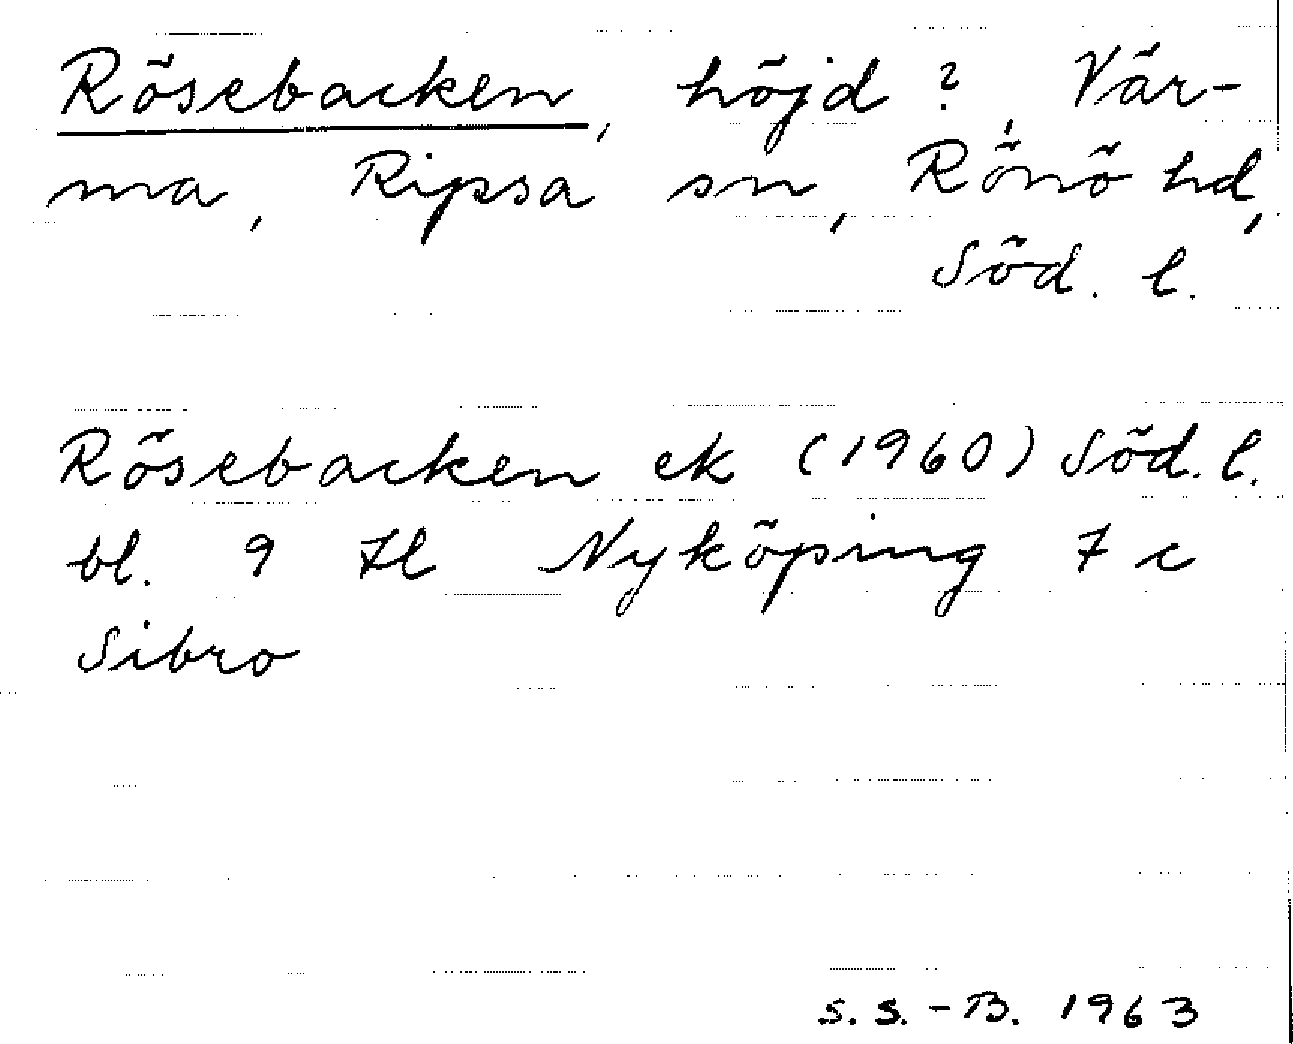 Rösebacken, höjd?, Vär-
ma, Ripsa sn, Rönö hd,
Söd. l.
Rösebacken ek (1960) Söd. l.
bl. 9 Il Nyköping 7 c
Sibro
S.S.-B. 1963